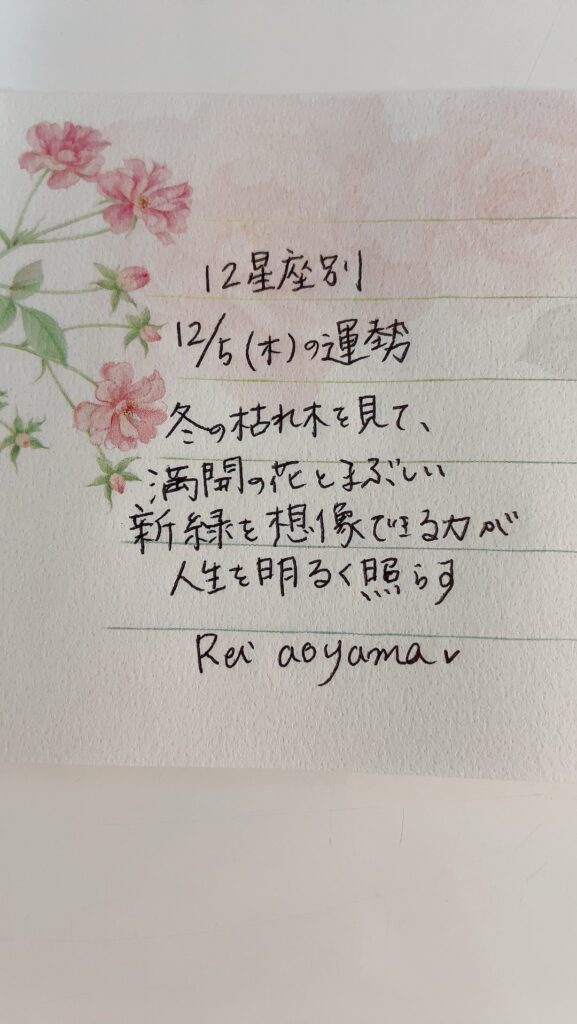 12星座別
12/5(木)の運勢
冬の枯れ木を見て、
満開の花とまぶしい
新緑を想像できる力が
人生を明るく照らす
Rei aoyama